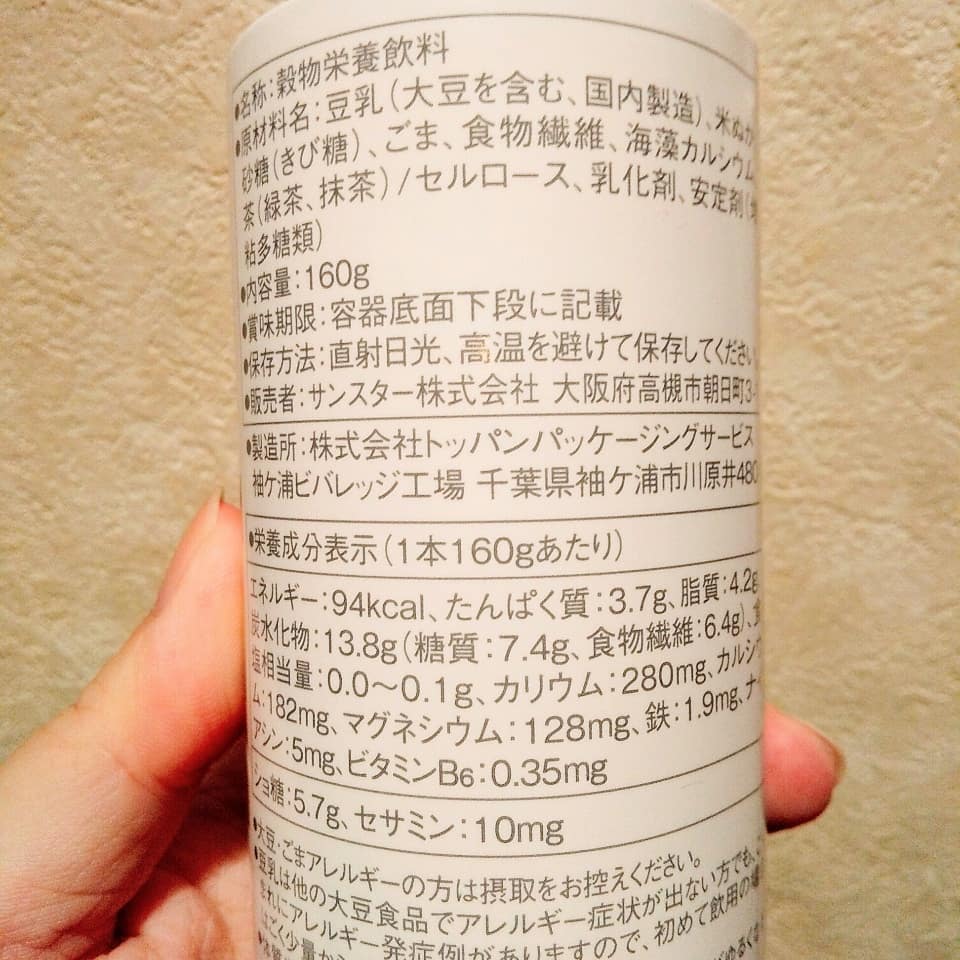 ●名称:穀物栄養飲料
●原材料名:豆乳(大豆を含む、国内製造)、米ぬか
砂糖(きび糖)、ごま、食物繊維、海藻カルシウム
茶(緑茶、抹茶)/セルロース、乳化剤、安定剤(
粘多糖類)
●内容量:160g
●賞味期限:容器底面下段に記載
●保存方法:直射日光、高温を避けて保存してください
●販売者:サンスター株式会社 大阪府高槻市朝日町3-
●製造所:株式会社トッパンパッケージングサービス
袖ケ浦ビバレッジ工場 千葉県袖ケ浦市川原井480
●栄養成分表示(1本160gあたり)
エネルギー:94kcal、たんぱく質:3.7g、脂質:4.2g
炭水化物:13.8g(糖質:7.4g、食物繊維:6.4g)、食
塩相当量:0.0〜0.1g、カリウム:280mg、カルシウ
ム:182mg、マグネシウム:128mg、鉄:1.9mg、ナイ
アシン:5mg、ビタミンB6:0.35mg
ショ糖:5.7g、セサミン:10mg
●大豆・ごまアレルギーの方は摂取をお控えください。
●豆乳は他の大豆食品でアレルギー症状が出ない方でも、
まれにアレルギー発症例がありますので、初めて飲用の場
はごく少量から